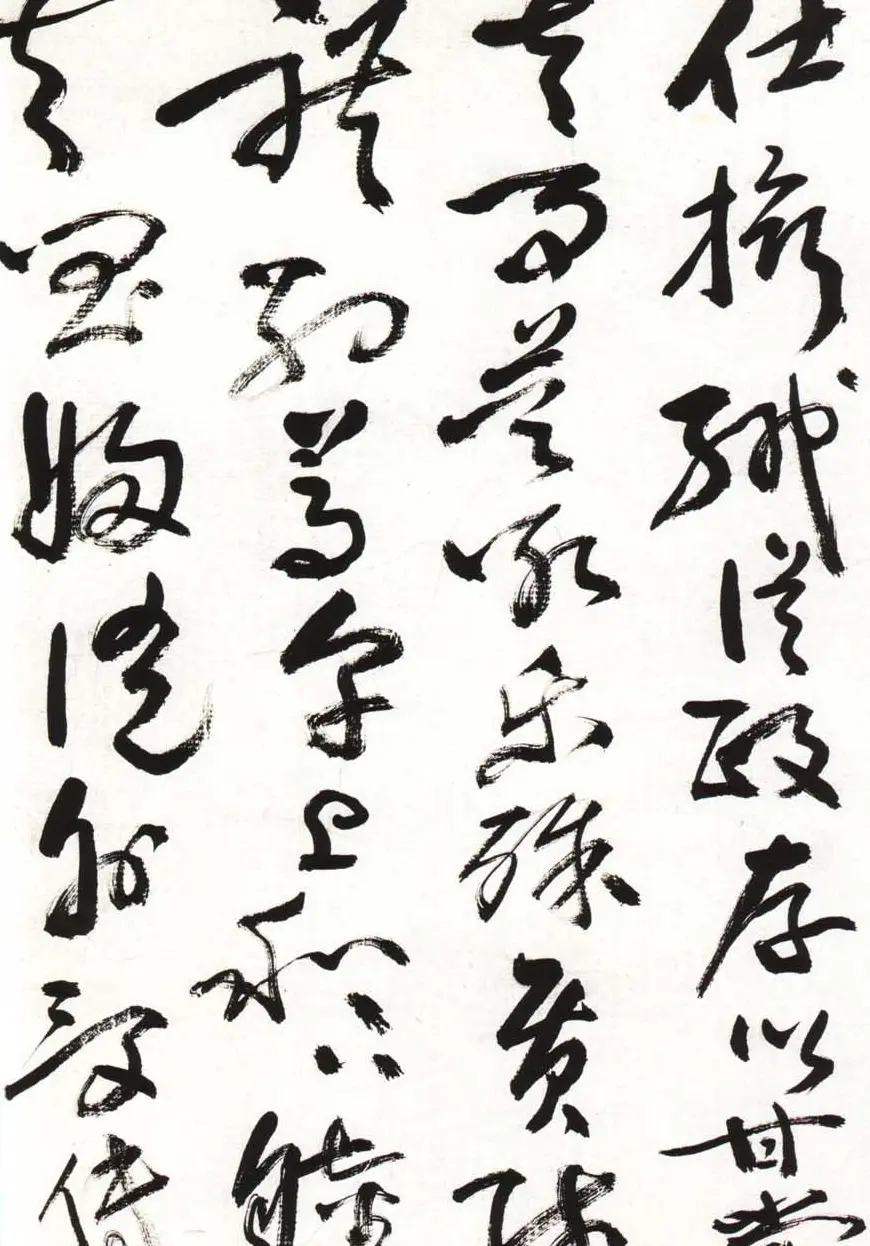 仕攝職從政存以甘棠
去而益詠樂殊貴賤
禮別尊卑上和下睦
夫唱婦隨外受傅